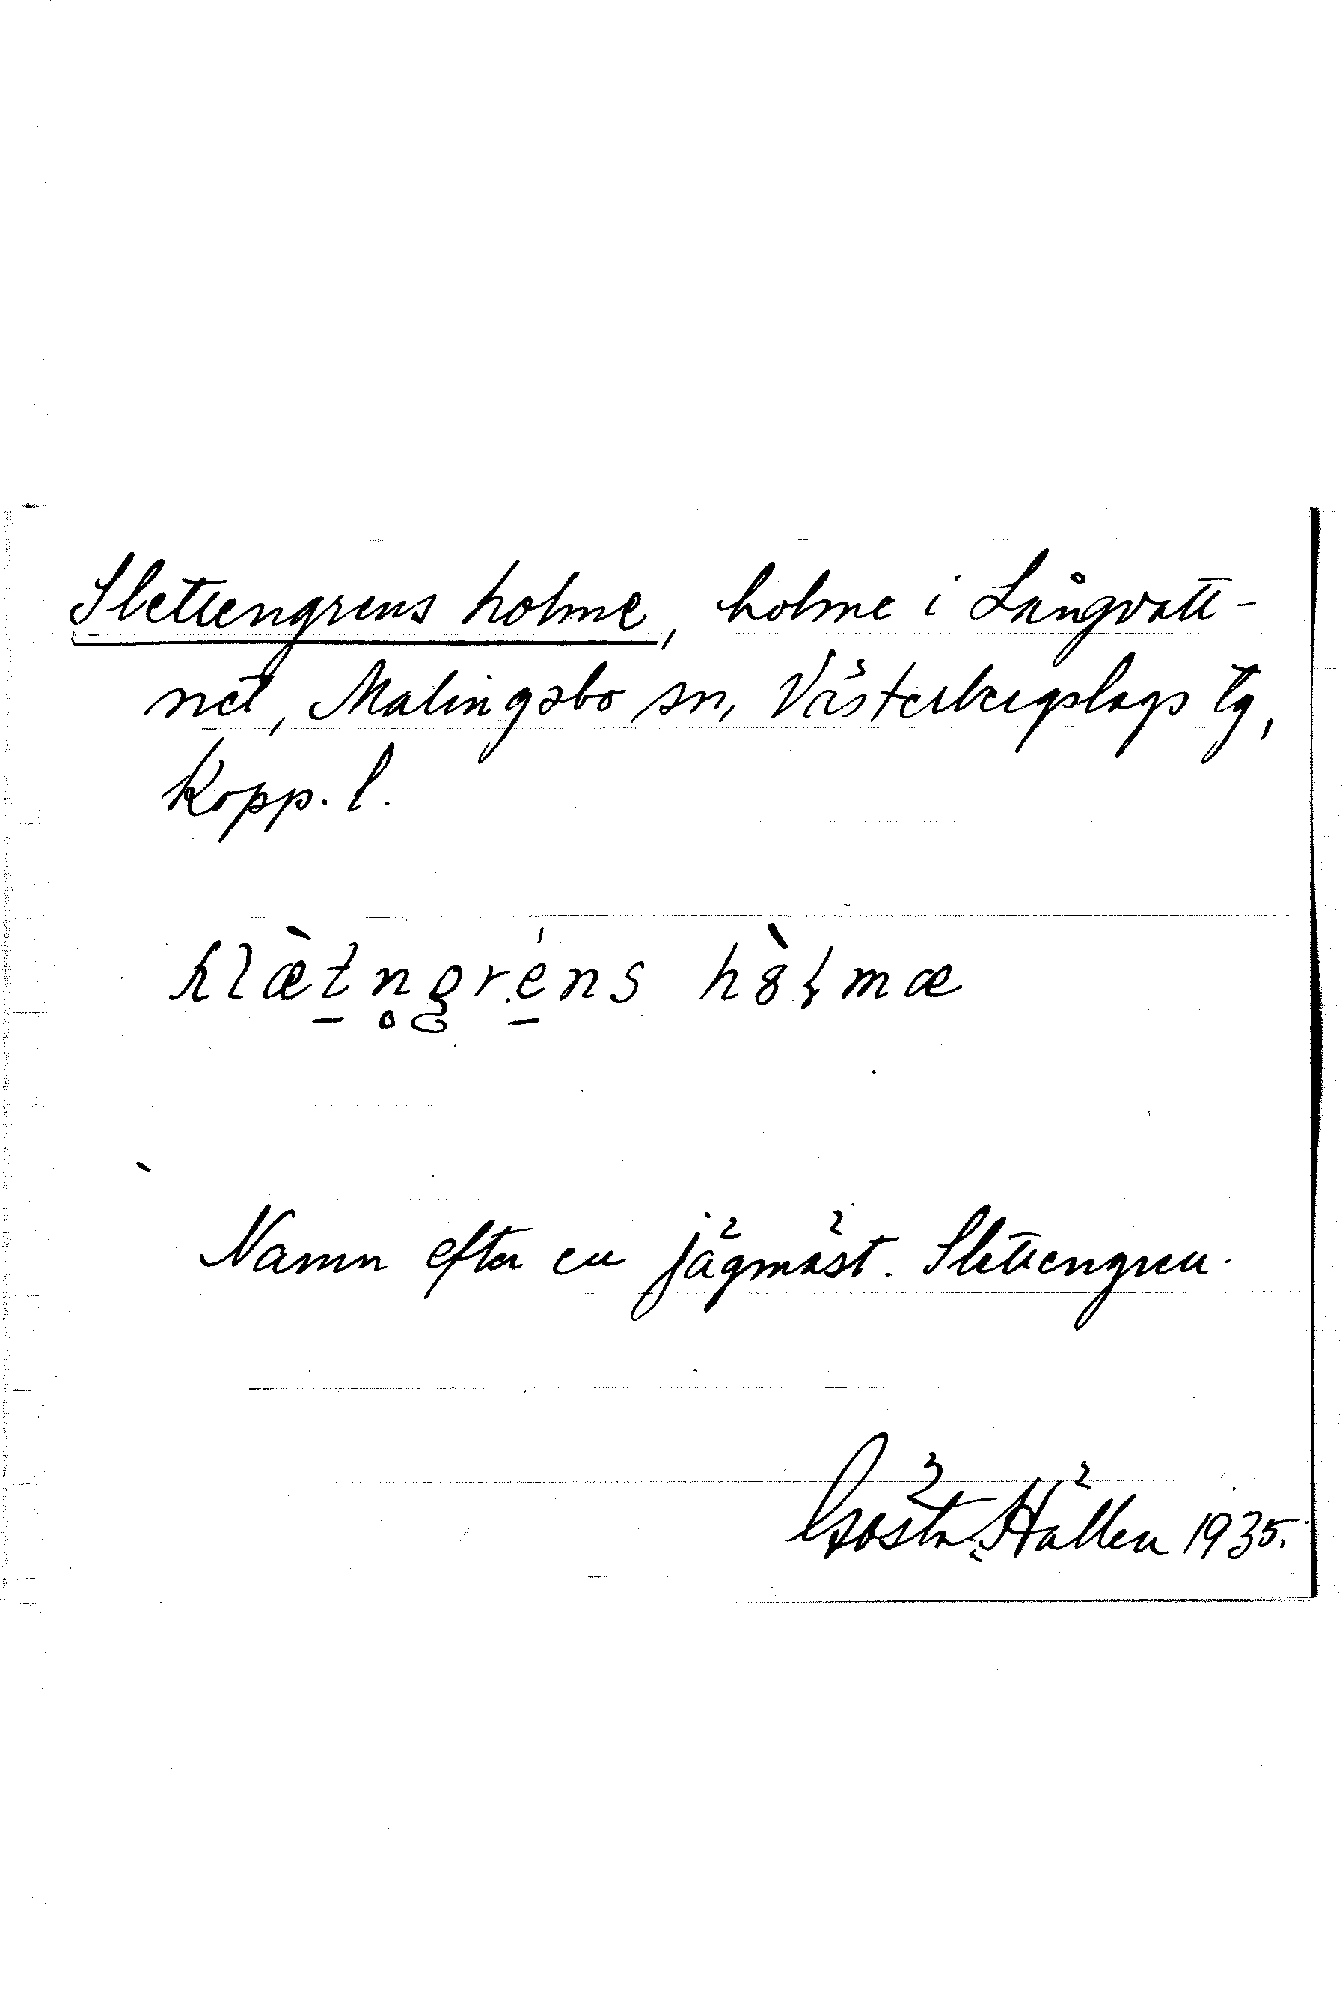 Slettengrens holme, holme i Långvatt-
net, Malingsbo sn, Västerbergslags tg,
Kopp. l.
hölmæ
Namn efter en jägmäst. Slettengren.
Gösta Hällen 1935.